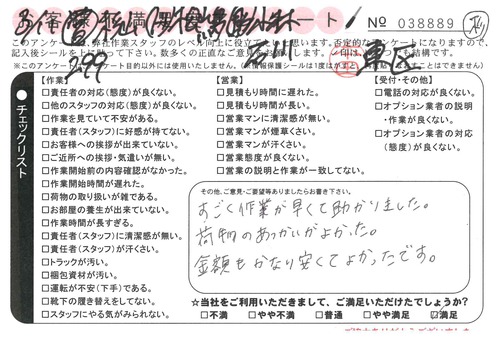 お客様満足度アンケート! No 038889
このアンケートは、弊社作業スタッフのレベル向上に役立てたいと思います。否定的なアンケートになりますので、
記入後シールを上に貼って下さい。数多くの正直な
※このアンケートは、アンケート目的以外には使用いたしません。
東区
チェックリスト
【作業】
□責任者の対応(態度)が良くない。
□他のスタッフの対応(態度)が良くない。
□作業を見ていて不安がある。
□責任者(スタッフ)に好感が持てない。
□お客様への挨拶が出来ていない。
□ご近所への挨拶・気遣いが無い。
□作業開始前の内容確認がなかった。
□作業開始時間が遅れた。
□荷物の取り扱いが雑である。
□お部屋の養生が出来ていない。
□作業時間が長すぎる。
□責任者(スタッフ)に清潔感が無い。
□責任者(スタッフ)が汗くさい。
□トラックが汚い。
□梱包資材が汚い。
□運転が不安(下手)である。
□靴下の履き替えをしてない。
□スタッフにやる気がみられない。
【営業】
□見積もり時間に遅れた。
□見積もり時間が長い。
□営業マンに清潔感が無い。
□営業マンが煙草くさい。
□営業マンが汗くさい。
□営業態度が良くない。
□営業の説明と作業が一致してない。
【受付・その他】
□電話の対応が良くない。
□オプション業者の説明
・作業が良くない。
□オプション業者の対応
(態度)が良くない。
その他、ご意見・ご要望等ありましたらお書き下さい。
すごく作業が早くて助かりました。
荷物のあつかいがよかった。
金額もかなり安くてよかったです。
☆当社をご利用いただきまして、ご満足いただけたでしょうか?
□不満 □やや不満 □普通 □やや満足 ☑満足
ご協力ありがとうございました